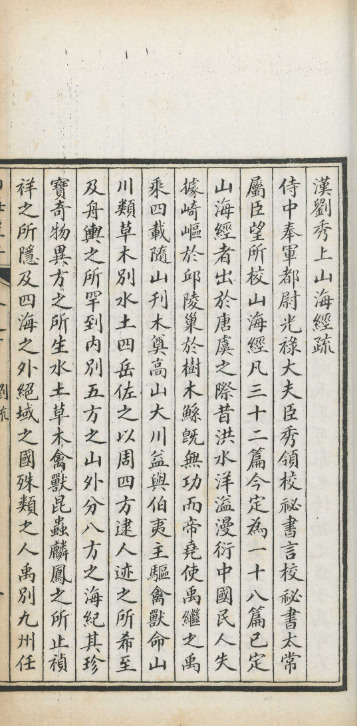 漢劉秀上山海經疏
侍中奉車都尉光祿大夫臣秀領校祕書言校祕書太常
屬臣望所校山海經凡三十二篇今定為一十八篇已定
山海經者出於唐虞之際昔洪水洋溢漫衍中國民人失
據崎嶇於邱陵巢於樹木鯀既無功而帝堯使禹繼之禹
乘四載隨山刊木奠高山大川益與伯夷主驅禽獸命山
川類草木別水土四岳佐之以周四方逮人迹之所希至
及舟輿之所罕到內別五方之山外分八方之海紀其珍
寶奇物異方之所生水土草木禽獸昆蟲麟鳳之所止禎
祥之所隱及四海之外絕域之國殊類之人禹別九州任
劉疏